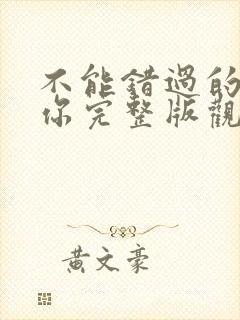 不能錯過的
你完整版觀
黃文豪